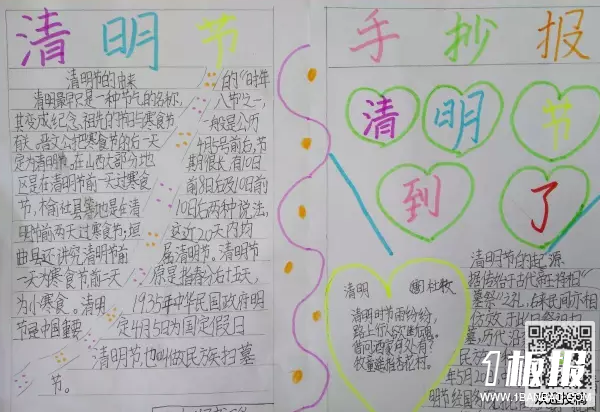 清明节
清明节的由来
清明最早只是一种节气的名称,
其变成纪念祖先的节日与寒食节
有关。晋文公把寒食节的后一天
定为清明节。在山西大部分地
区是在清明节前一天过寒食
节,榆社县等地是在清
明节前两天过寒食节,垣
曲县还讲究清明节前
一天为寒食节前二天
为小寒食。清明
节是中国重要
的“时年
八节”之一,
一般是公历
4月5号前后,节
期很长,有10日
前8日后及10日前
10日后两种说法,
这近20天内均
属清明节。清明节
原是指春分后15天,
1935年中华民国政府明
定4月5日为国定假日
清明节也叫做民族扫墓
节。
手抄报
清明节
到了
清明
杜牧
清明时节雨纷纷,
路上行人欲断魂。
借问酒家何处有?
牧童遥指杏花村。
清明节的起源
据传始于古代帝王将相“
墓祭”之礼,
民间亦相
仿效于此日祭祖扫
墓,历代沿
民
年5月
明节经国务院
1板报
WWW.1BANBAO.COM